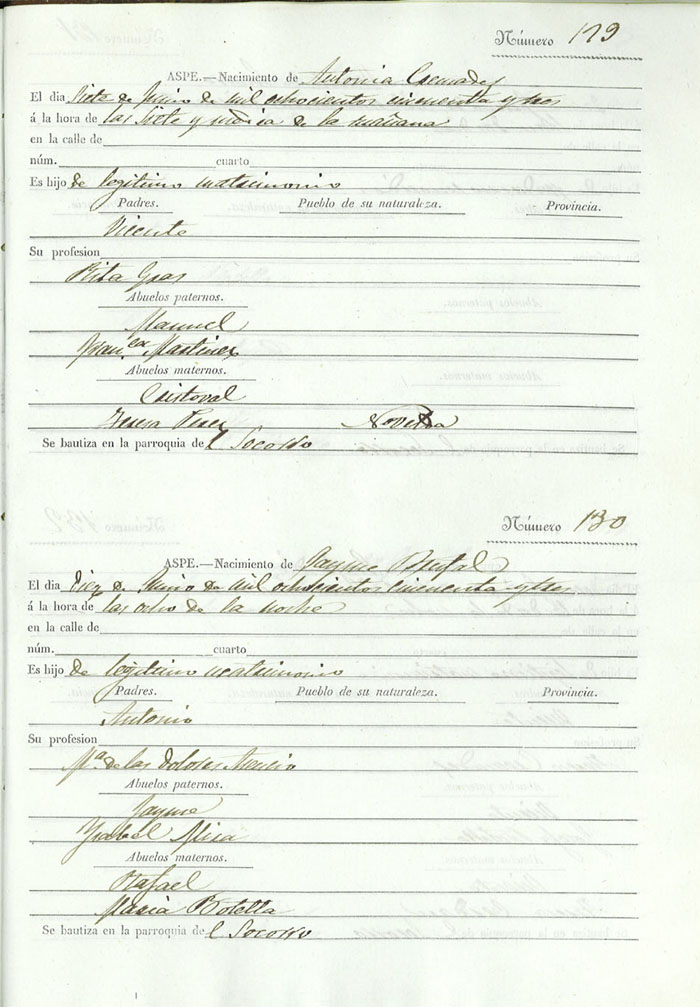 Número 129
ASPE.—Nacimiento de Antonia Cremades
El dia Siete de Junio de mil ochocientos cincuenta y tres
á la hora de las siete y media de la mañana
en la calle de
núm. cuarto
Es hijo de legitimo matrimonio
Padres. Pueblo de su naturaleza. Provincia.
Vicente
Su profesion
Rita Gras
Abuelos paternos.
Manuel
Fran.ca Martinez
Abuelos maternos.
Cristoval
Teresa Perez Novelda
Se bautiza en la parroquia del Socorro
Número 130
ASPE.—Nacimiento de Jayme
El dia Diez de Junio de mil ochocientos cincuenta y tres
á la hora de las ocho de la noche
en la calle de
núm. cuarto
Es hijo de legitimo matrimonio
Padres. Pueblo de su naturaleza. Provincia.
Antonio
Su profesion
Mª. de los Dolores
Abuelos paternos.
Jayme
Ysabel Mira
Abuelos maternos.
Rafael
Maria Botella
Se bautiza en la parroquia del Socorro